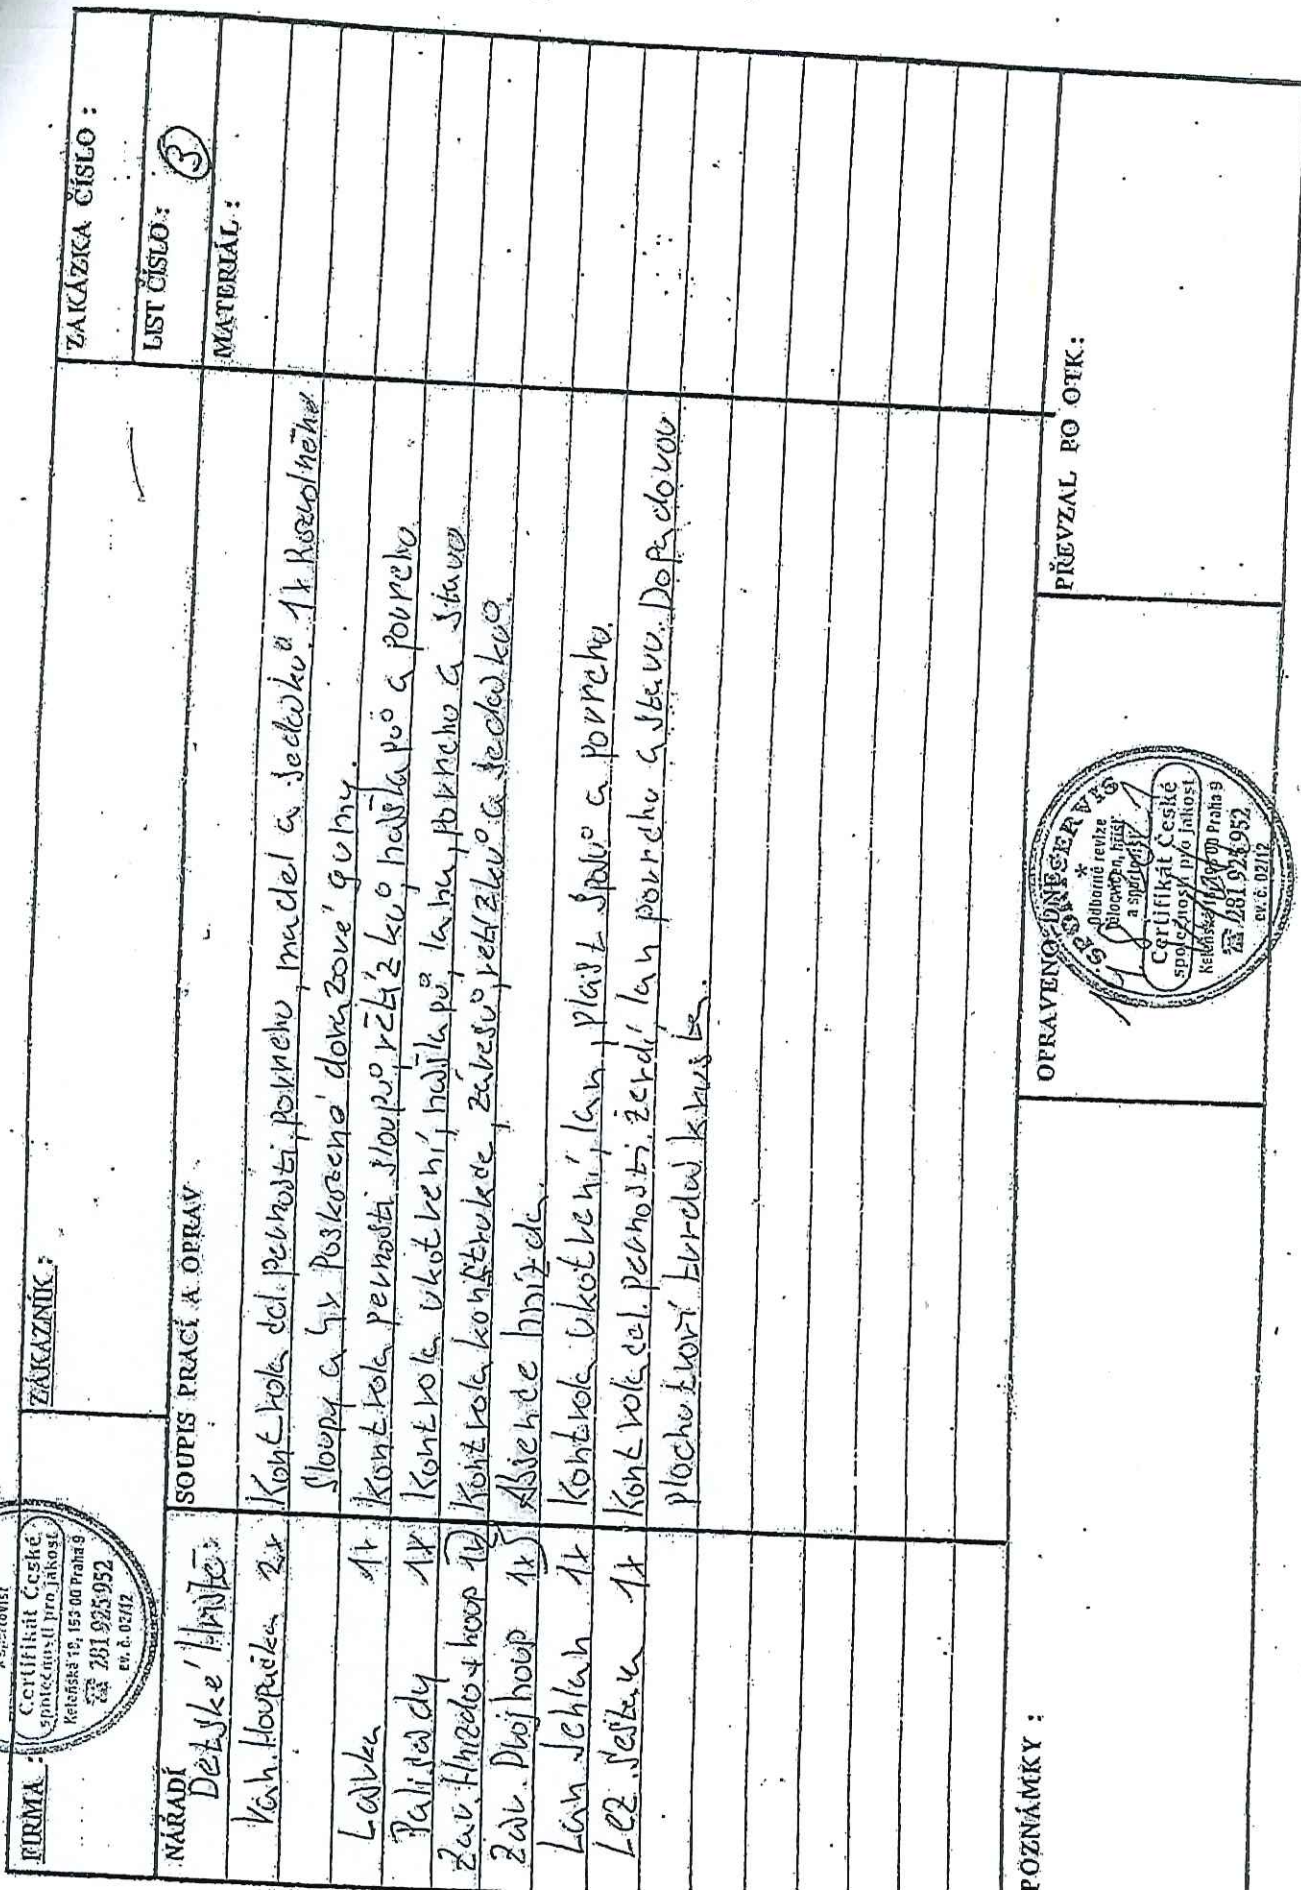 FIRMA :
Certifikát České
společnosti pro jakost
Keleńská 10, 153 00 Praha 9
☎ 281 925 952
ev. č. 02/12
ZÁKAZNÍK :
ZAKÁZKA ČÍSLO :
LIST ČÍSLO : 3
NÁŘADÍ
SOUPIS PRACÍ A OPRAV
MATERIÁL :
Dětské Hřiště
Váh. Houpačka 2x Kontrola cel. pevnosti, povrchu, madel a sedaků. 1x Rozvolněné
sloupy a 4x Poškozené dorazové gumy.
Lávka 1x Kontrola pevnosti sloupů, řetízků, nášlapů a povrchu
Palisády 1x Kontrola ukotvení, nášlapů, lanu, povrchu a stavu
Záv. Hnízdo + houp 1x Kontrola konstrukce, závěsů, řetízků a sedaků.
Záv. Dvojhoup 1x Absence hnízda.
Lan Jehlan 1x Kontrola ukotvení, lan, plast spojů a povrchu.
Lez. Sestava 1x Kontrola cel. pevnosti. žerdí lan povrchu a stavu. Dopadovou
plochu tvoří tvrdá krusta.
POZNÁMKY :
OPRAVENO DNE
SPORTSERVIS
Odborné revize
tělocvičen, hřišť
a sportovišť
Certifikát České
společnosti pro jakost
00 Praha 9
☎ 281 925 952
ev. č. 02/12
PŘEVZAL PO OTK: